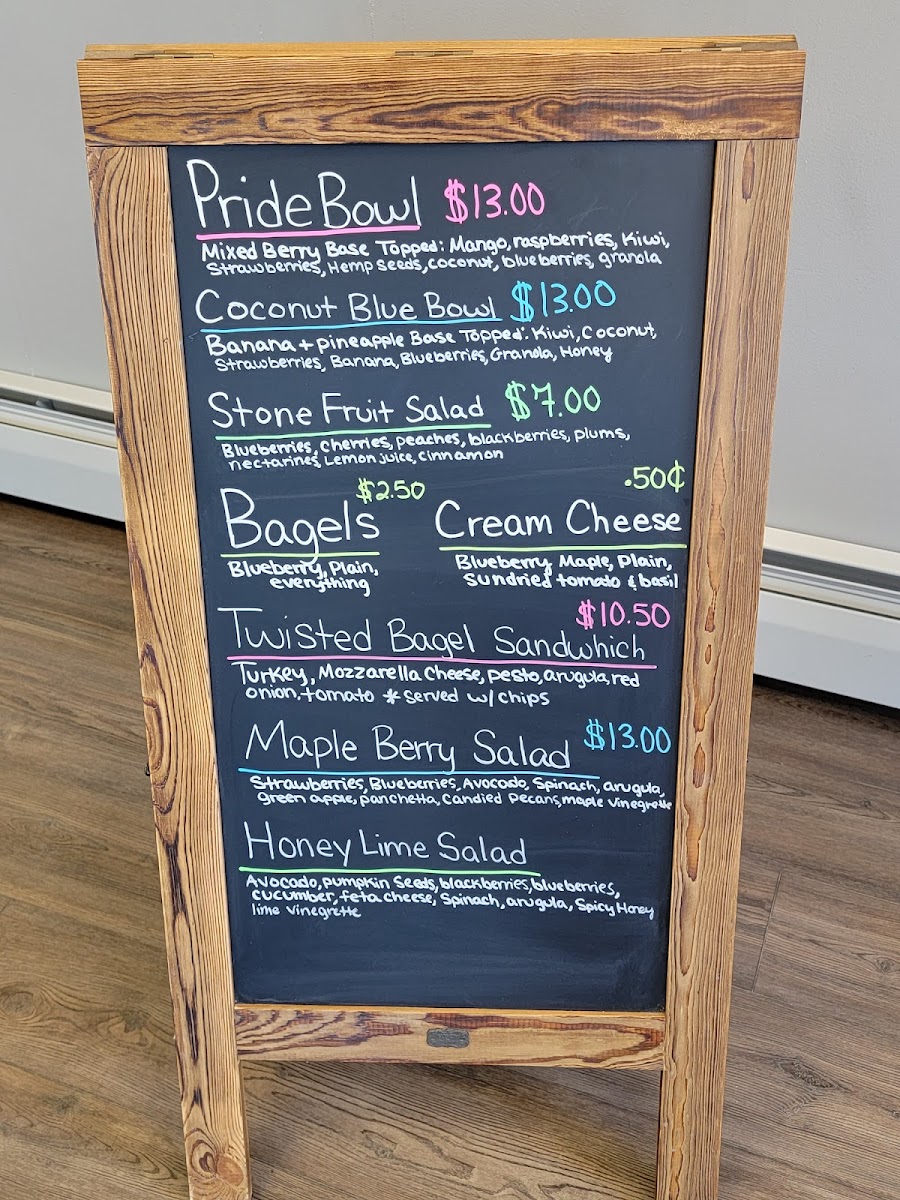 Pride Bowl $13.00
Mixed Berry Base Topped: Mango, raspberries, Kiwi,
Strawberries, Hemp Seeds, coconut, blueberries, granola
Coconut Blue Bowl $13.00
Banana + pineapple Base Topped: Kiwi, Coconut,
Strawberries, Banana, Blueberries, Granola, Honey
Stone Fruit Salad $7.00
Blueberries, Cherries, peaches, blackberries, plums,
nectarines, Lemon juice, cinnamon
$2.50
Bagels
Blueberry, Plain,
everything
.50¢
Cream Cheese
Blueberry, Maple, Plain,
Sundried tomato & basil
$10.50
Twisted Bagel Sandwhich
Turkey, Mozzarella Cheese, pesto, arugula, red
onion, tomato * served w/ chips
Maple Berry Salad $13.00
Strawberries, Blueberries, Avocado, Spinach, arugula,
Green apple, panchetta, Candied Pecans, maple vinegrette
Honey Lime Salad
Avocado, pumpkin Seeds, blackberries, blueberries,
cucumber, feta cheese, Spinach, arugula, Spicy Honey
lime vinegrette